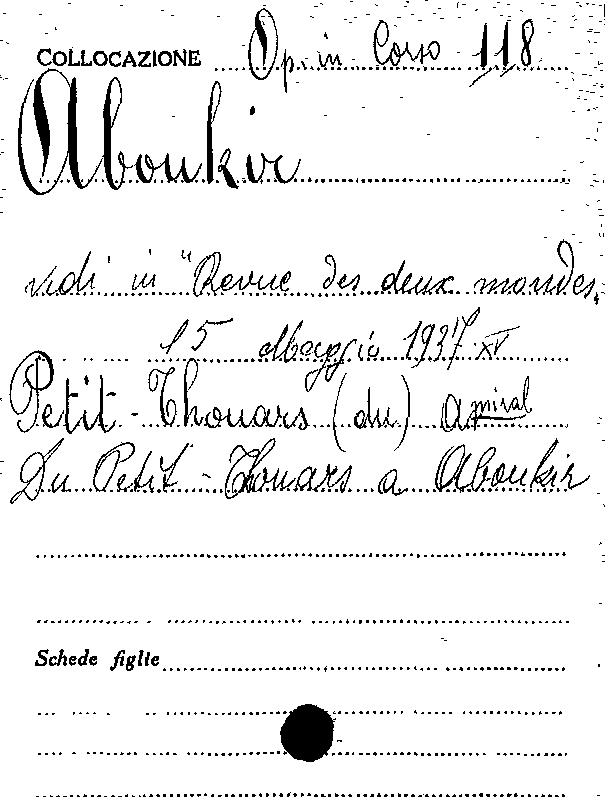 COLLOCAZIONE Op. in Corso 118
Aboukir
vedi in "Revue des deux mondes,
15 Maggio 1937 XV
Petit-Thouars (du) Amiral
Du Petit-Thouars a Aboukir
Schede figlie